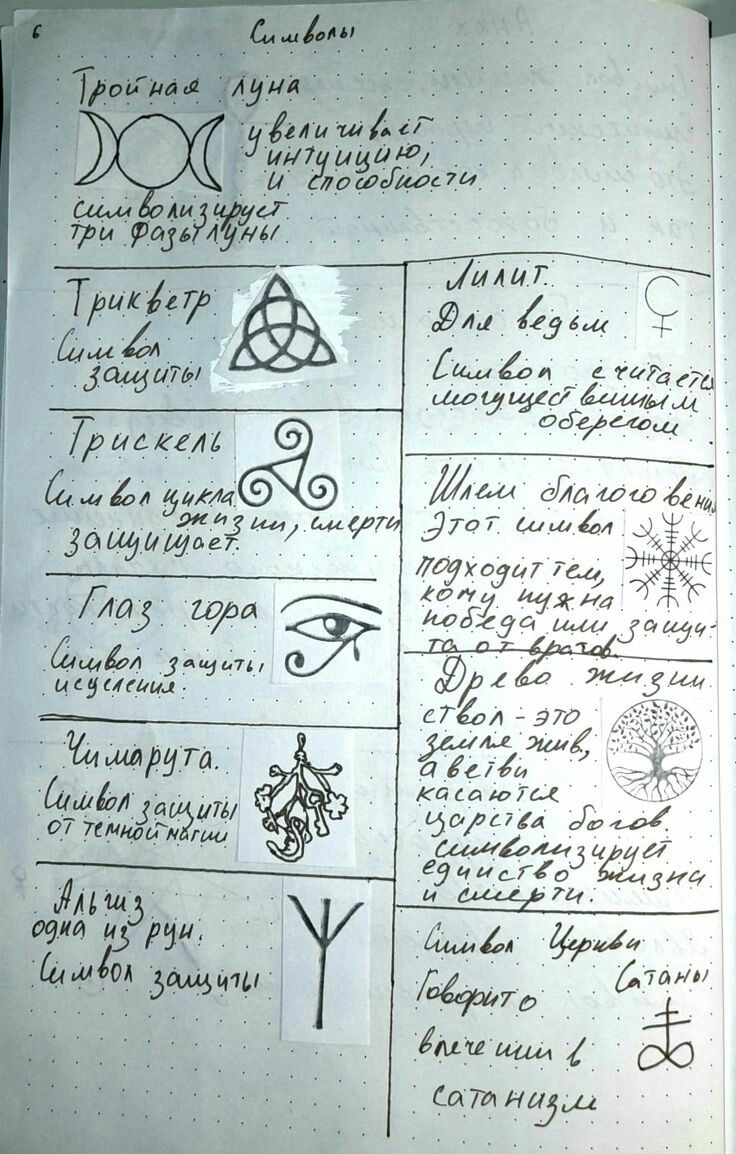 6
Символы
Тройная луна
увеличивает
интуицию,
и способности
символизирует
три фазы луны
Трикветр
Символ
защиты
Трискель
Символ цикла
жизни, смерти
защищает.
Глаз гора
Символ защиты
исцеления.
Чимарута.
Символ защиты
от темной магии
Альгиз
одна из рун.
Символ защиты
Лилит.
Для ведьм
Символ считается
могущественным
оберегом
Шлем благоговения
Этот символ
подходит тем,
кому нужна
победа или защи-
та от врагов.
Древо жизни
ствол - это
земля жив,
а ветви
касаются
царства богов.
символизирует
единство жизни
и смерти.
Символ Церкви
Сатаны
Говорит о
влечении в
сатанизм